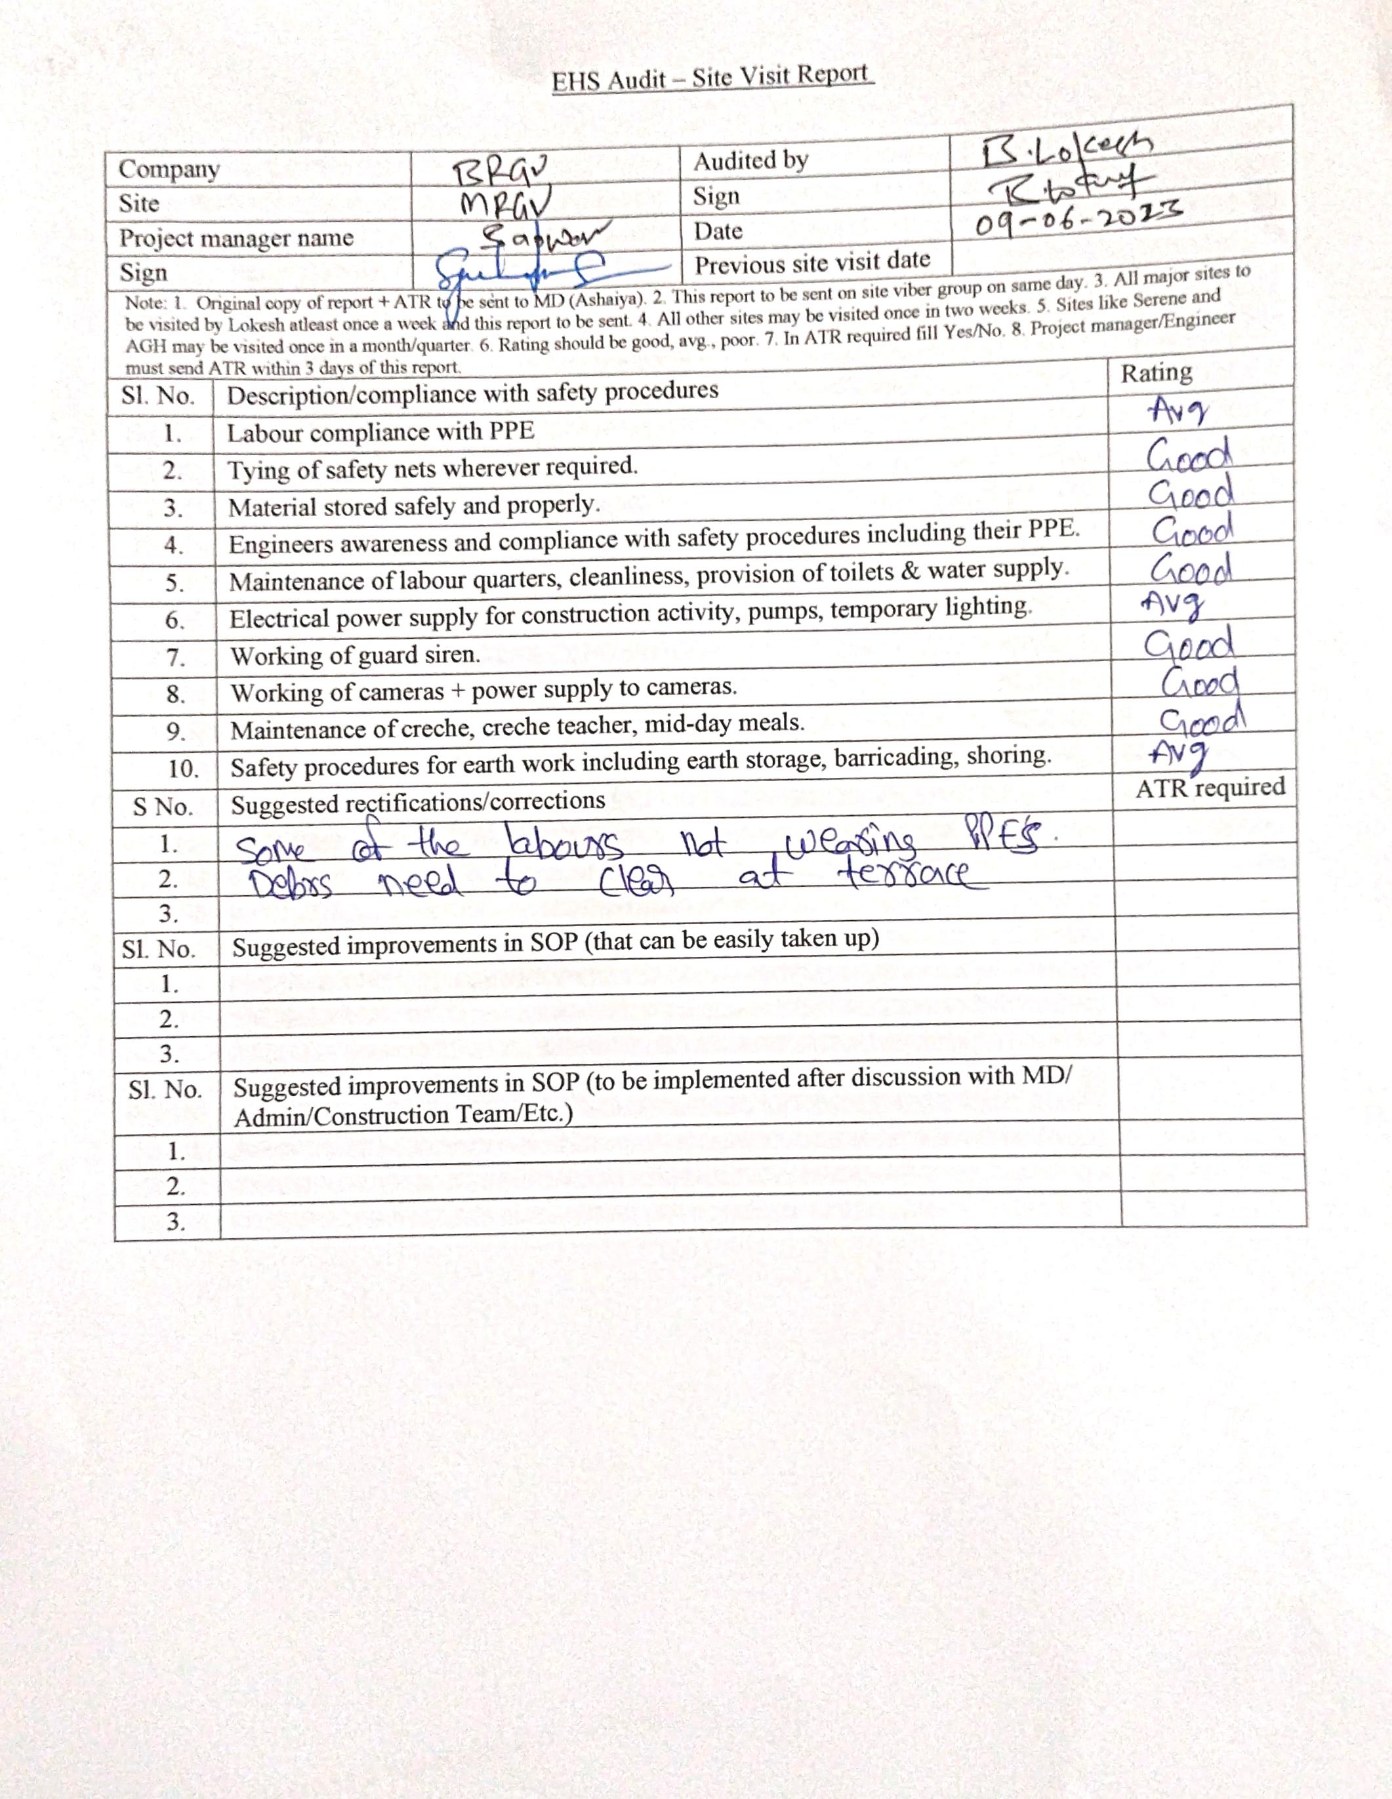 EHS Audit – Site Visit Report
Company BRGV Audited by B.Lokesh
Site MRGV Sign
Project manager name Date 09-06-2023
Sign Previous site visit date
Note: 1. Original copy of report + ATR to be sent to MD (Ashaiya). 2. This report to be sent on site viber group on same day. 3. All major sites to
be visited by Lokesh atleast once a week and this report to be sent. 4. All other sites may be visited once in two weeks. 5. Sites like Serene and
AGH may be visited once in a month/quarter. 6. Rating should be good, avg., poor. 7. In ATR required fill Yes/No. 8. Project manager/Engineer
must send ATR within 3 days of this report.
Sl. No. Description/compliance with safety procedures Rating
1. Labour compliance with PPE Avg
2. Tying of safety nets wherever required. Good
3. Material stored safely and properly. Good
4. Engineers awareness and compliance with safety procedures including their PPE. Good
5. Maintenance of labour quarters, cleanliness, provision of toilets & water supply. Good
6. Electrical power supply for construction activity, pumps, temporary lighting. Avg
7. Working of guard siren. Good
8. Working of cameras + power supply to cameras. Good
9. Maintenance of creche, creche teacher, mid-day meals. Good
10. Safety procedures for earth work including earth storage, barricading, shoring. Avg
S No. Suggested rectifications/corrections ATR required
1. Some of the labours not wearing PPE's.
2. Debrs need to clear at terrace
3.
Sl. No. Suggested improvements in SOP (that can be easily taken up)
1.
2.
3.
Sl. No. Suggested improvements in SOP (to be implemented after discussion with MD/
Admin/Construction Team/Etc.)
1.
2.
3.